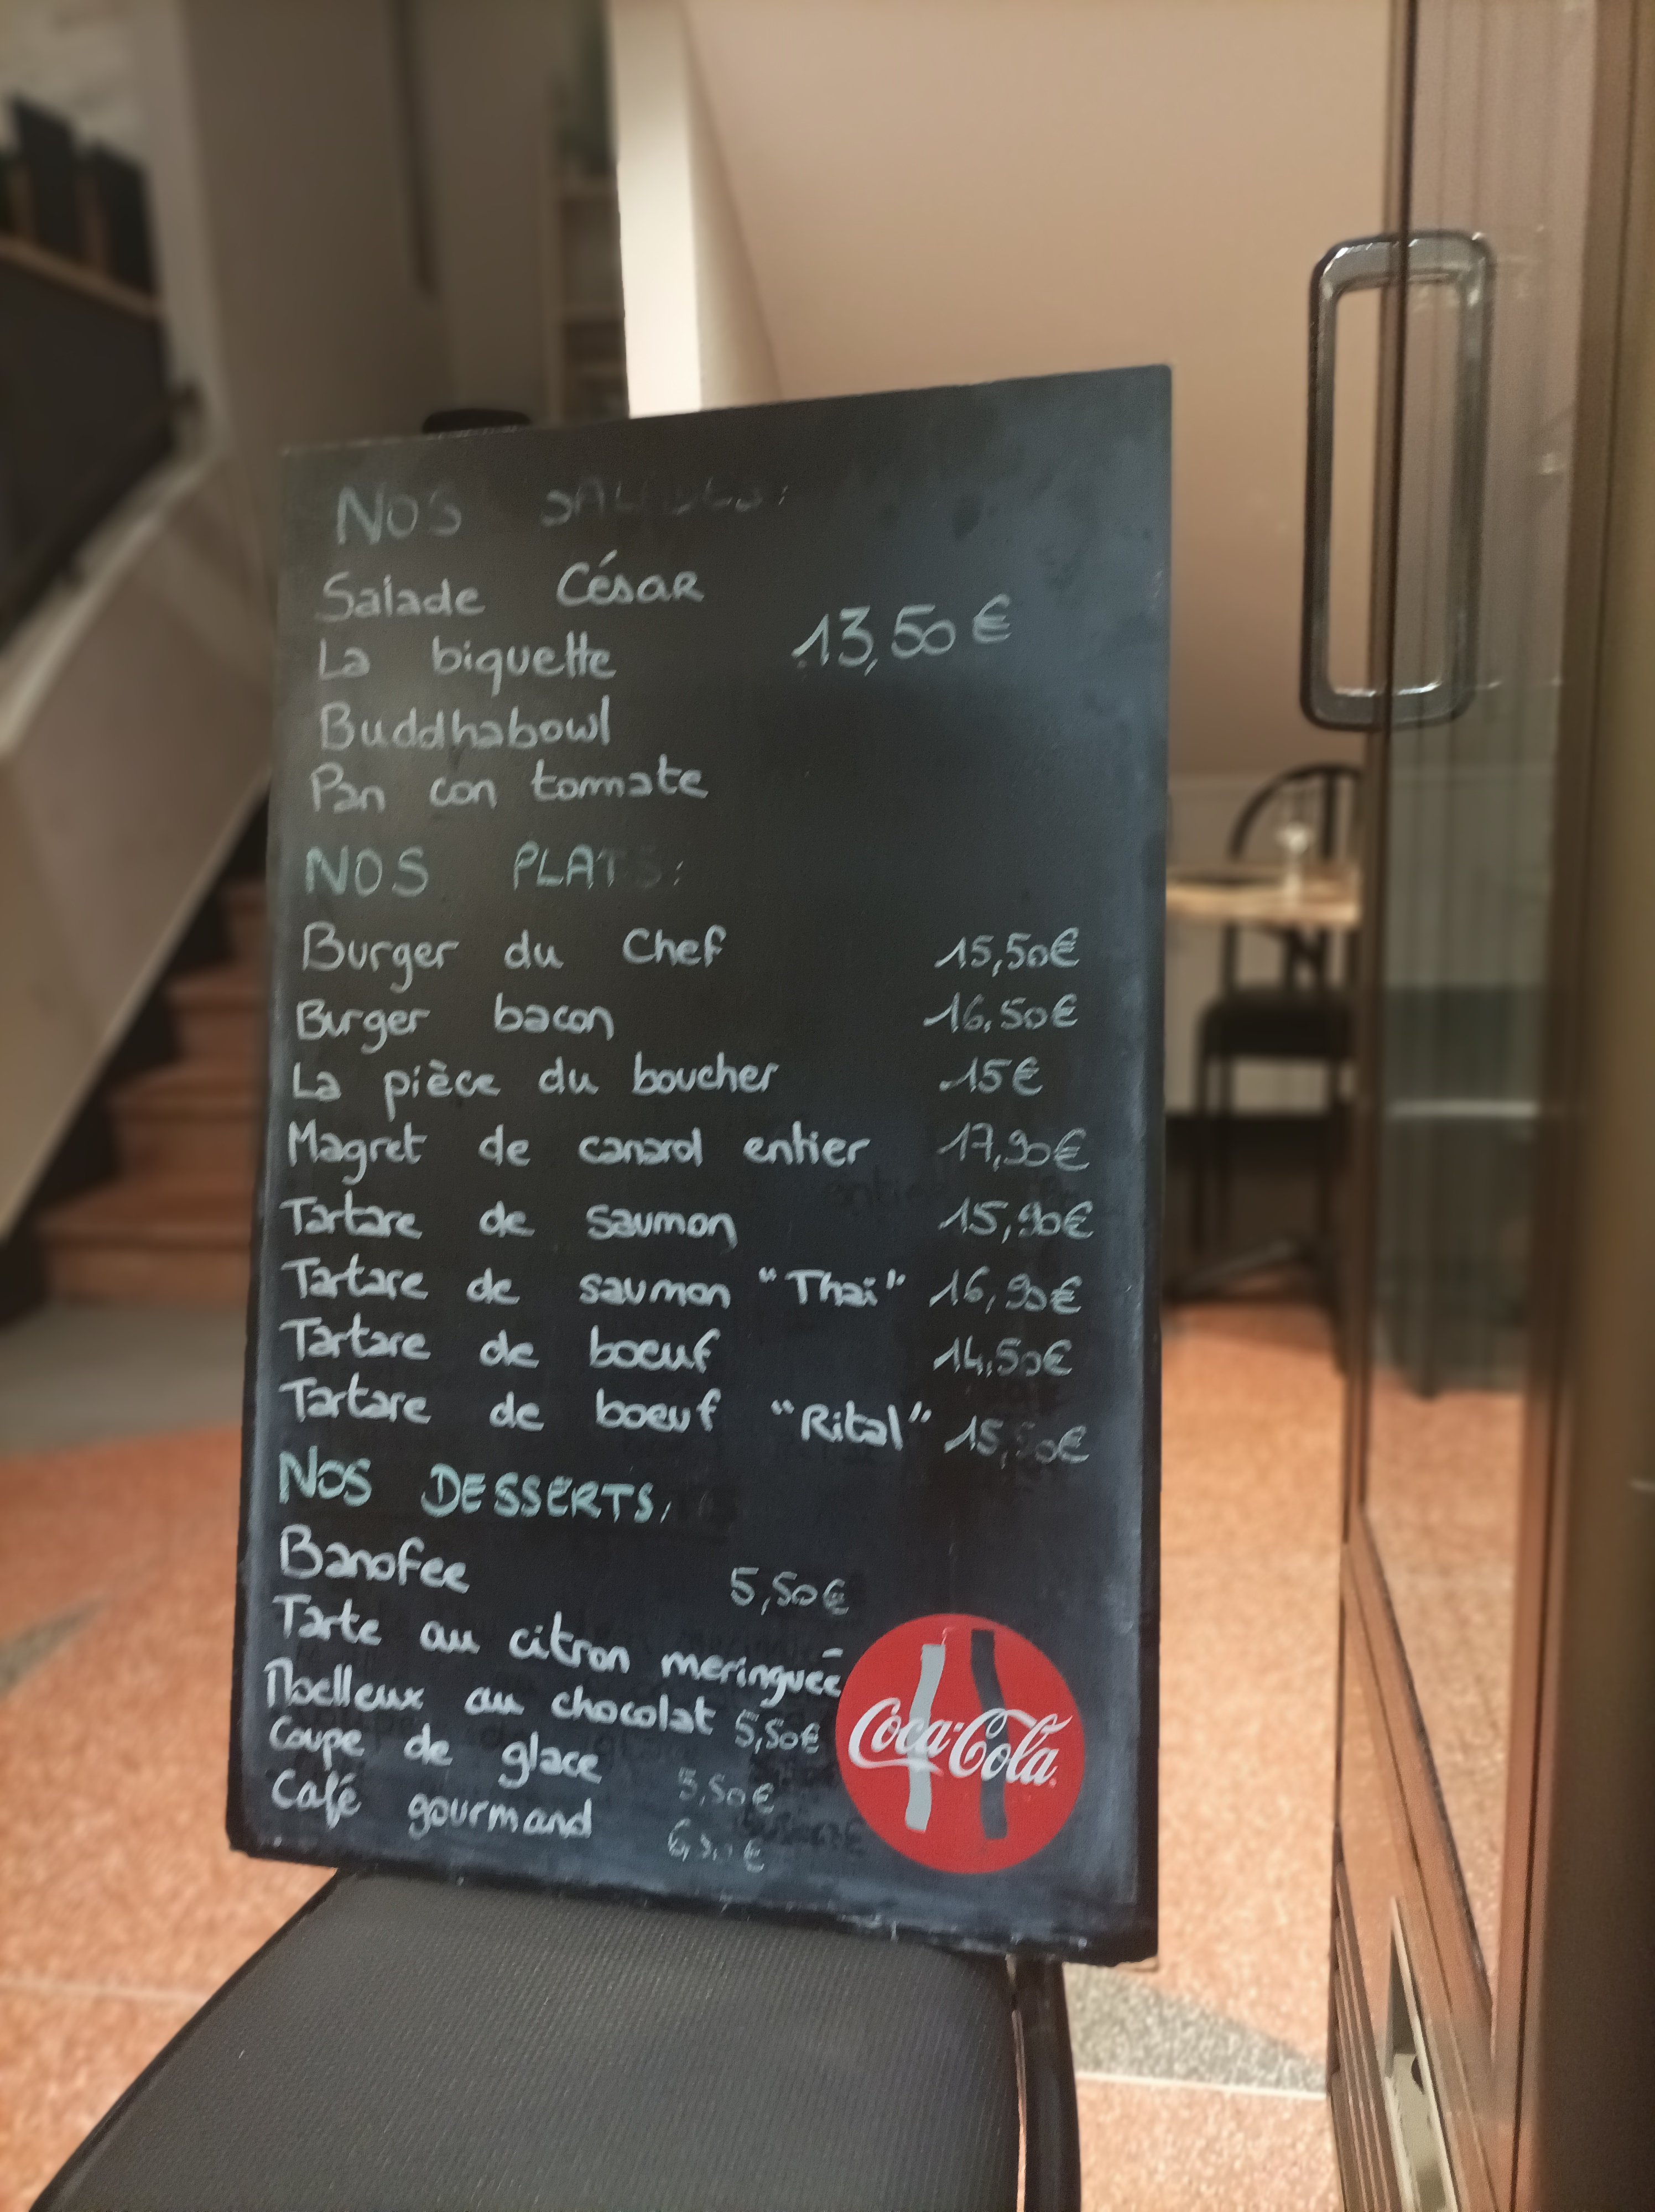 NOS SALADES:
Salade César
La biquette 13,50€
Buddhabowl
Pan con tomate
NOS PLATS:
Burger du Chef 15,50€
Burger bacon 16,50€
La pièce du boucher 15€
Magret de canard entier 17,90€
Tartare de saumon 15,90€
Tartare de saumon "Thaï" 16,90€
Tartare de boeuf 14,50€
Tartare de boeuf "Rital"
NOS DESSERTS:
Banofee 5,50€
Tarte au citron meringuée
Moelleux au chocolat 5,50€
Coupe de glace 5,50€
Café gourmand
Coca-Cola